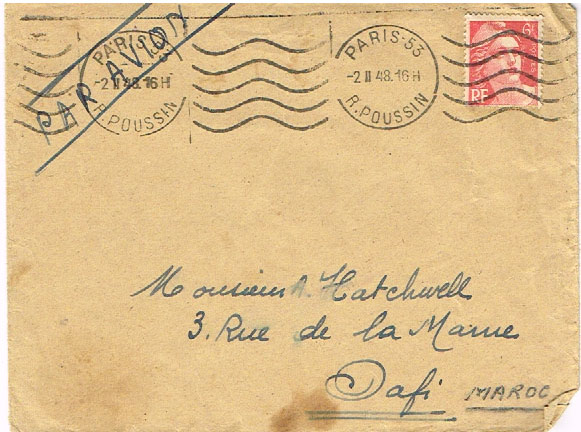 PAR AVION
PARIS-53
-2 II 48.16H
R. POUSSIN
PARIS-53
-2 II 48.16H
R. POUSSIN
6F
RF
Monsieur A. Hatchwell
3, Rue de la Marne
Safi MAROC